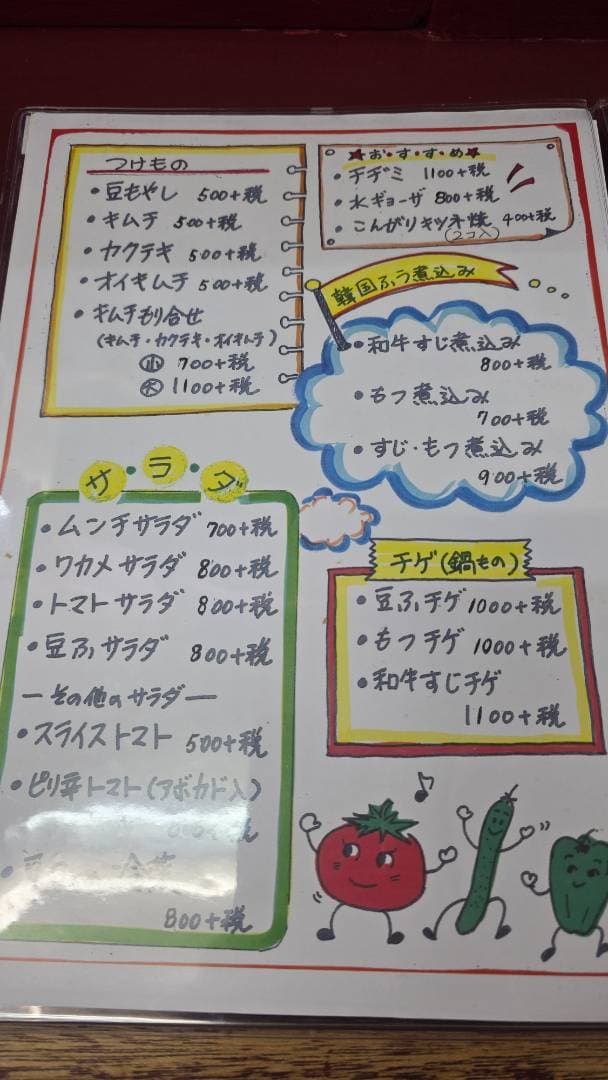 つけもの
・豆もやし 500+税
・キムチ 500+税
・カクテキ 500+税
・オイキムチ 500+税
・キムチもり合せ
(キムチ・カクテキ・オイキムチ)
小 700+税
大 1100+税
★お・す・す・め★
・チヂミ 1100+税
・水ギョーザ 800+税
・こんがりキツネ焼 400+税
(2コ入)
韓国ふう煮込み
・和牛すじ煮込み
800+税
・もつ煮込み
700+税
・すじ・もつ煮込み
900+税
サ・ラ・ダ
・ムンチサラダ 700+税
・ワカメサラダ 800+税
・トマトサラダ 800+税
・豆ふサラダ 800+税
—その他のサラダ—
・スライストマト 500+税
・ピリ辛トマト(アボカド入)
税
800+税
チゲ(鍋もの)
・豆ふチゲ 1000+税
・もつチゲ 1000+税
・和牛すじチゲ
1100+税